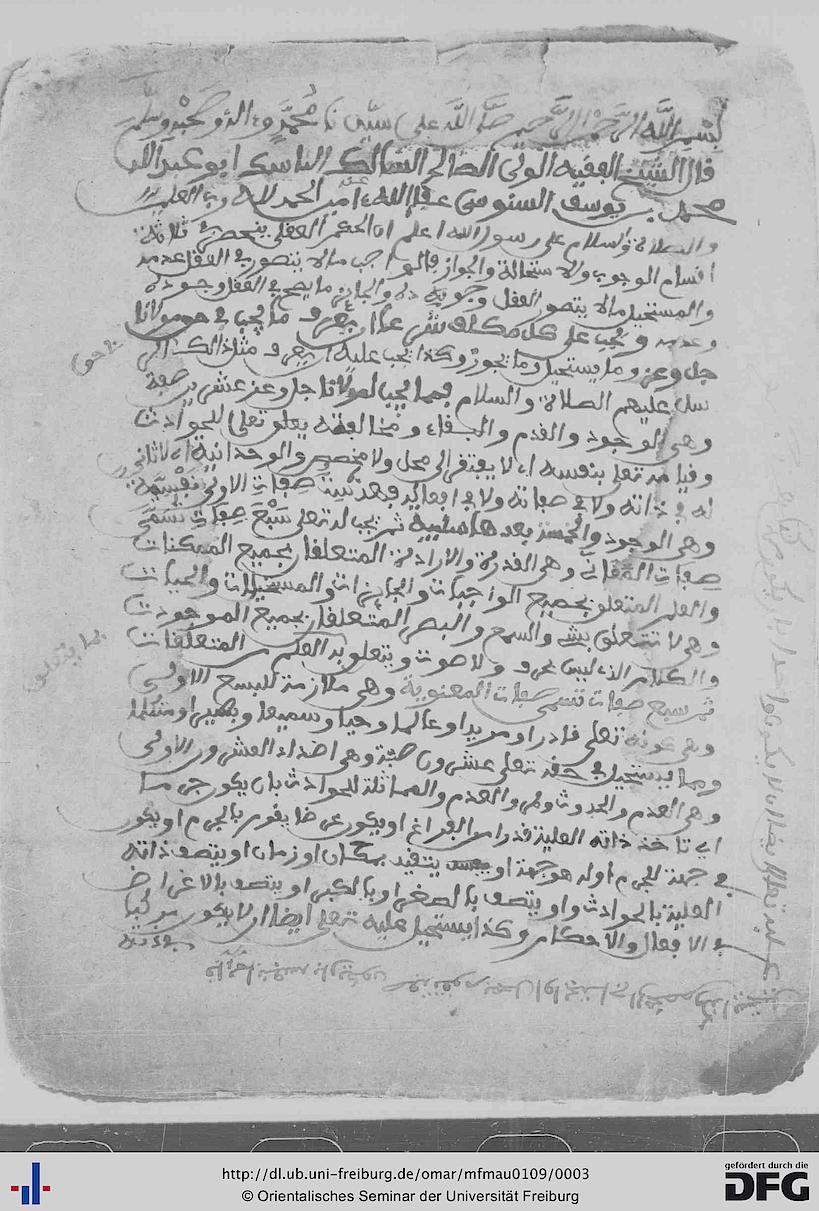 بسم الله الرحمن الرحيم صلى الله على سيدنا محمد وءاله وصحبه وسلم
قال الشيخ الفقيه الولي الصالح السالك الناسك ابو عبد الله
محمد بن يوسف السنوسي عفا الله عنه امين الحمد لله رب العلمين
والصلاة والسلام على رسول الله اعلم ان الحكم العقلي ينحصر في ثلاثة
اقسام الوجوب والاستحالة والجواز فالواجب ما لا يتصور في العقل عدمه
والمستحيل ما لا يتصور في العقل وجوده والجائز ما يصح في العقل وجوده
وعدمه ويجب على كل مكلف شرعا ان يعرف ما يجب في حق مولانا
جل وعز وما يستحيل وما يجوز وكذا يجب عليه ان يعرف مثل ذالك
في حق
الرسل عليهم الصلاة والسلام فمما يجب لمولانا جل وعز عشرون صفة
وهي الوجود والقدم والبقاء ومخالفته تعلى للحوادث
وقيامه تعلى بنفسه اي لا يفتقر الى محل ولا مخصص والوحدانية اي لا ثاني
له في ذاته ولا في صفاته ولا في افعاله فهذه ست صفات الاولى نفسية
وهي الوجود والخمسة بعدها سلبية ثم يجب له تعلى سبع صفات تسمى
صفات المعاني وهي القدرة والارادة المتعلقان بجميع الممكنات
والعلم المتعلق بجميع الواجبات والجائزات والمستحيلات والحيات
وهي لا تتعلق بشيء والسمع والبصر المتعلقان بجميع الموجودات
والكلام الذي ليس بحرف ولا صوت ويتعلق به العلم من المتعلقات
بما يتعلق
ثم سبع صفات تسمى صفات المعنوية وهي ملازمة للسبع الاولى
وهي كونه تعلى قادرا ومريدا وعالما وحيا وسميعا وبصيرا ومتكلما
ومما يستحيل في حقه تعلى عشرون صفة وهي اضداد العشرون الاولى
وهي العدم والحدوث وطرو العدم والمماثلة للحوادث بان يكون جرما
اي تاخذ ذاته العلية قدرا من الفراغ او يكون عرضا يقوم بالجرم او يكون
في جهة للجرم او له هو جهة او يتقيد بمكان او زمان او يتصف ذاته
العلية بالحوادث او يتصف بالصغر او بالكبر او يتصف بالاغراض
في الافعال والاحكام وكذا يستحيل عليه تعلى ايضا ان لا يكون
http://dl.ub.uni-freiburg.de/omar/mfmau0109/0003
© Orientalisches Seminar der Universität Freiburg
gefördert durch die
DFG